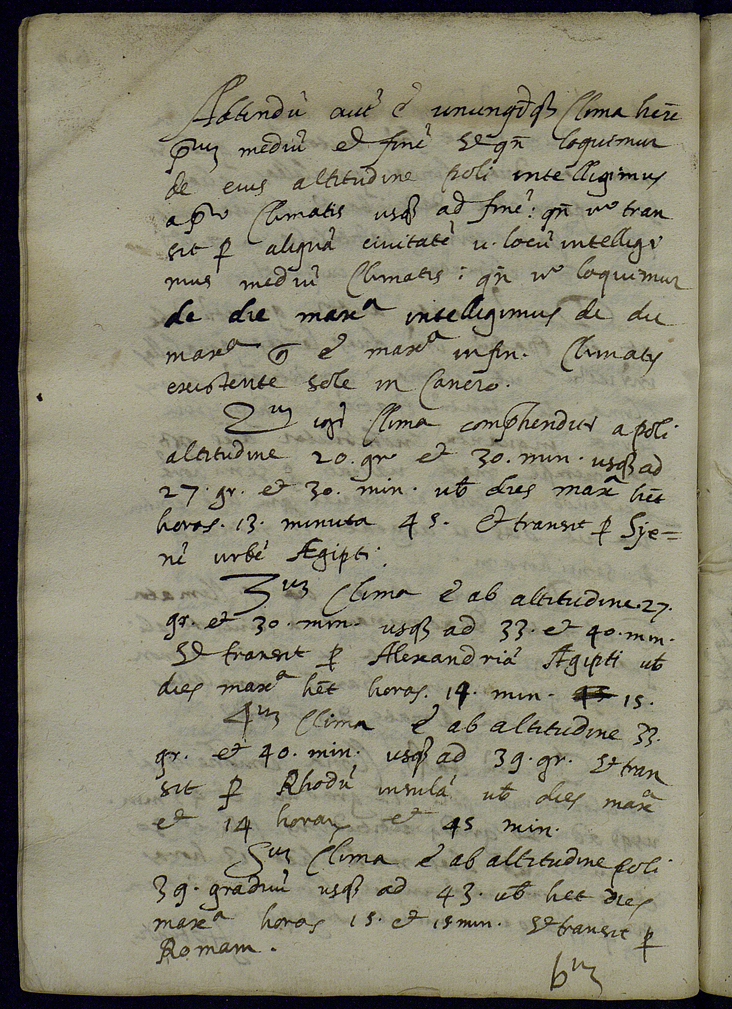 Attendū aut̄ ē unumq̄dq̄ Clima hēre
p̄um mediū et finē Et qn̄ loquimur
de eius altitudine poli intelligimus
a p̄o Climatis usq̄ ad finē: qn̄ vo tran
sit p aliquā ciuitatē u. locū intelligi
mus mediū Climatis: qn̄ vo loquimur
de die maxa intelligimus de die
maxa q̄ ē maxa in fin. Climatis
existente sole in Cancro.
2um Clima comp̄hendit̄ a poli
altitudine 20. gr. et 30. min. usq̄ ad
27. gr. et 30. min. ub̄ dies maxa hēt
horas. 13. minuta 45. Et transit p Sye=
nē urbē Ægipti.
3um Clima ē ab altitudine. 27.
gr. et 30. min. usq̄ ad 33. et 40. min.
Et transit p Alexandriā Ægipti ub̄
dies maxa hēt horas. 14. min. 15.
4um Clima ē ab altitudine 33.
gr. et 40. min. usq̄ ad 39. gr. Et tran
sit p Rhodū insulā ub̄ dies maxa
et 14 horas et 45 min.
5um Clima ē ab altitudine poli
39. graduū usq̄ ad 43. ub̄ het dies
maxa horas 15. et 15 min. Et transit p
Romam.
6um